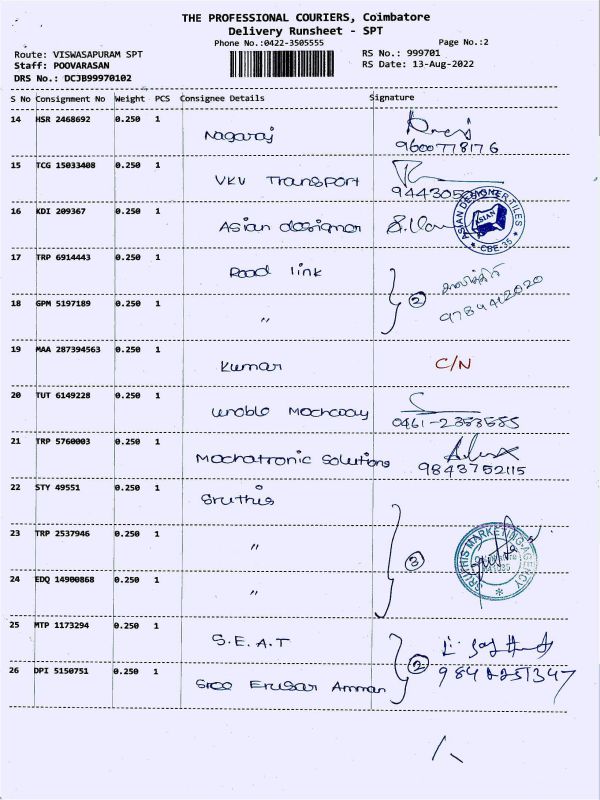 THE PROFESSIONAL COURIERS, Coimbatore
Delivery Runsheet - SPT
Phone No.:0422-3505555 Page No.:2
Route: VISWASAPURAM SPT RS No.: 999701
Staff: POOVARASAN RS Date: 13-Aug-2022
DRS No.: DCJB99970102
S No Consignment No Weight PCS Consignee Details Signature
14 HSR 2468692 0.250 1 Nagaraj
9600778176
15 TCG 15033408 0.250 1 VKV Transport
944305
16 KDI 209367 0.250 1 Asian designer
ASIAN DESIGNER TILES
ASIAN
* CBE-35 *
17 TRP 6914443 0.250 1 Road link
2
18 GPM 5197189 0.250 1 "
19 MAA 287394563 0.250 1 Kumar C/N
20 TUT 6149228 0.250 1
0461-2353585
21 TRP 5760003 0.250 1 Mechatronic Solutions
9843752115
22 STY 49551 0.250 1 Sruthis
23 TRP 2537946 0.250 1 "
3
SRUTHIS MARKETING AGENCY
24 EDQ 14900868 0.250 1 "
25 MTP 1173294 0.250 1 S.E.A.T
2
26 DPI 5150751 0.250 1 Sree Amman